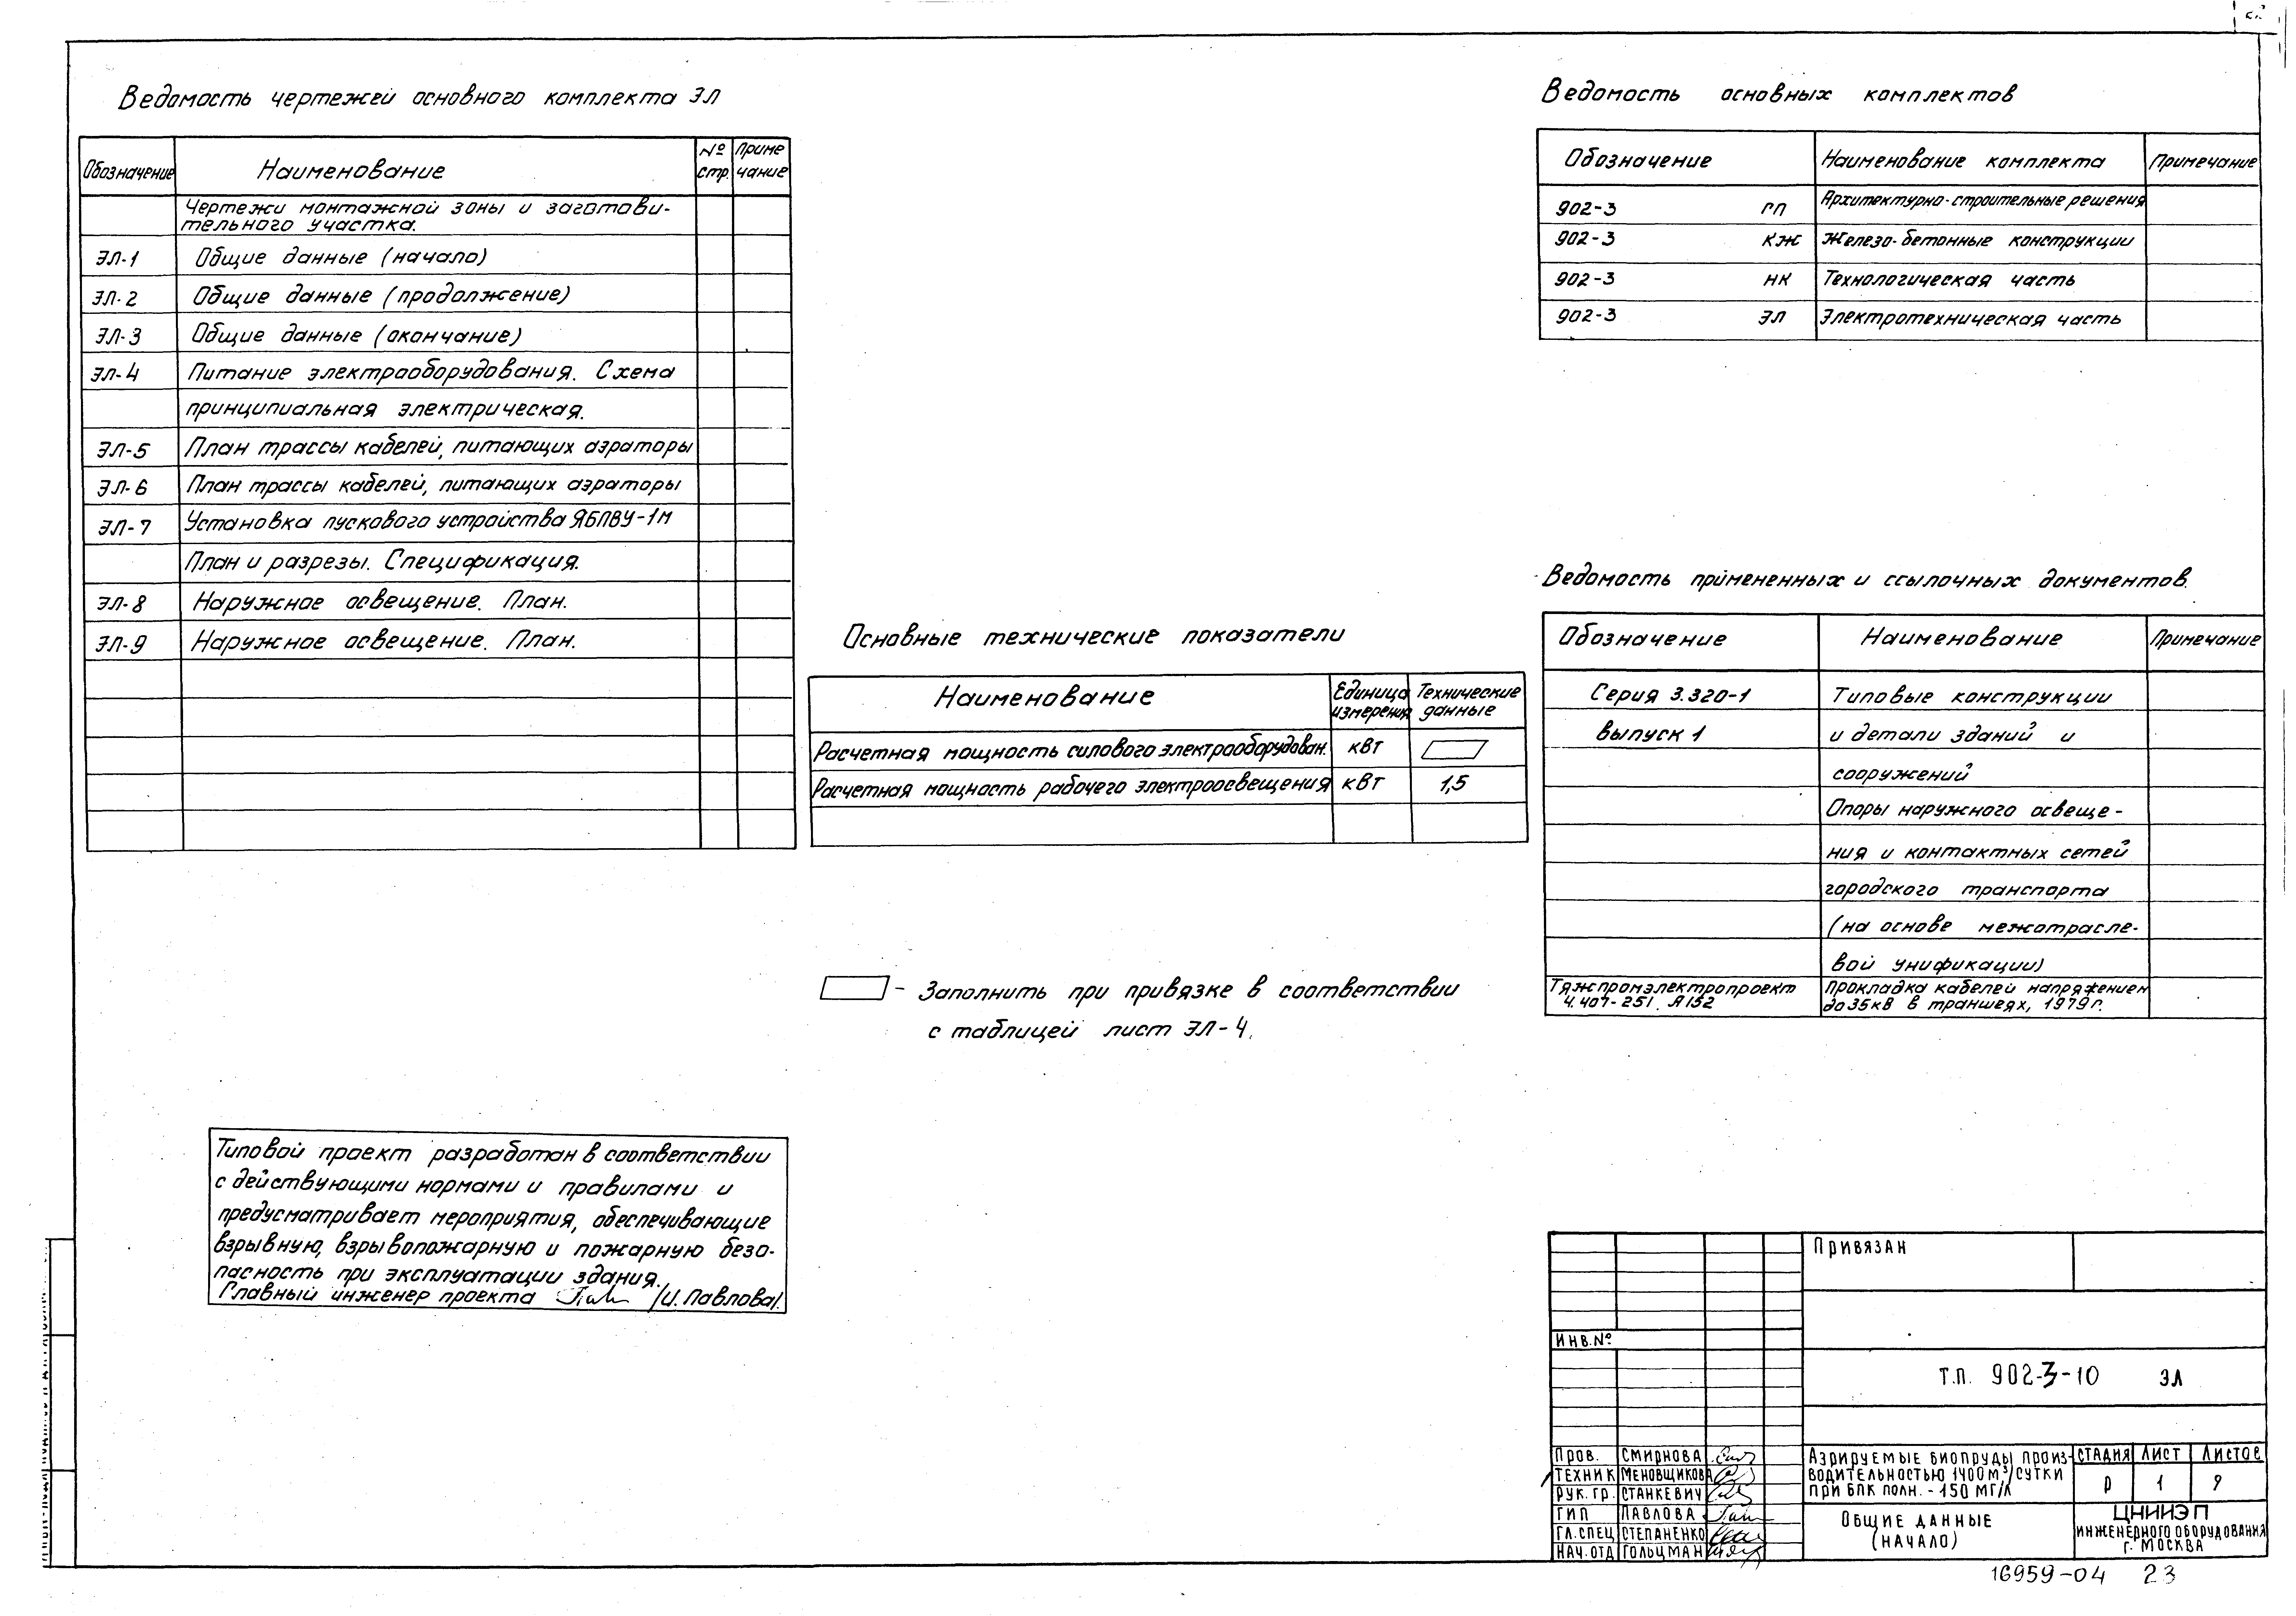 Ведомость чертежей основного комплекта ЭЛ
Обозначение Наименование № стр. Приме чание
Чертежи монтажной зоны и заготови-
тельного участка.
ЭЛ-1 Общие данные (начало)
ЭЛ-2 Общие данные (продолжение)
ЭЛ-3 Общие данные (окончание)
ЭЛ-4 Питание электрооборудования. Схема
принципиальная электрическая.
ЭЛ-5 План трассы кабелей, питающих аэраторы
ЭЛ-6 План трассы кабелей, питающих аэраторы
ЭЛ-7 Установка пускового устройства ЯБПВУ-1М
План и разрезы. Спецификация.
ЭЛ-8 Наружное освещение. План.
ЭЛ-9 Наружное освещение. План.
Основные технические показатели
Наименование Единица измерения Технические данные
Расчетная мощность силового электрооборудован. кВт
Расчетная мощность рабочего электроосвещения кВт 1,5
- Заполнить при привязке в соответствии
с таблицей лист ЭЛ-4.
Ведомость основных комплектов
Обозначение Наименование комплекта Примечание
902-3 ГП Архитектурно-строительные решения
902-3 КЖ Железо-бетонные конструкции
902-3 НК Технологическая часть
902-3 ЭЛ Электротехническая часть
Ведомость примененных и ссылочных документов.
Обозначение Наименование Примечание
Серия 3.320-1 Типовые конструкции
выпуск 1 и детали зданий и
сооружений
Опоры наружного освеще-
ния и контактных сетей
городского транспорта
(на основе межотрасле-
вой унификации)
Тяжпромэлектропроект Прокладка кабелей напряжением
4.407-251. А152 до 35кВ в траншеях, 1979г.
Типовой проект разработан в соответствии
с действующими нормами и правилами и
предусматривает мероприятия, обеспечивающие
взрывную, взрывопожарную и пожарную безо-
пасность при эксплуатации здания.
Главный инженер проекта /И. Павлова/.
Привязан
Инв.№
Т.П. 902-3-10 ЭЛ
Пров. Смирнова
Техник Меновщикова
Рук. гр. Станкевич
ГИП Павлова
Гл.спец Степаненко
Нач.отд Гольцман
Аэрируемые биопруды произ-
водительностью 1400 м³/сутки
при БПК полн. - 150 мг/л
Стадия Лист Листов
Р 1 9
Общие данные
(начало)
ЦНИИЭП
инженерного оборудования
г. Москва
16959-04 23